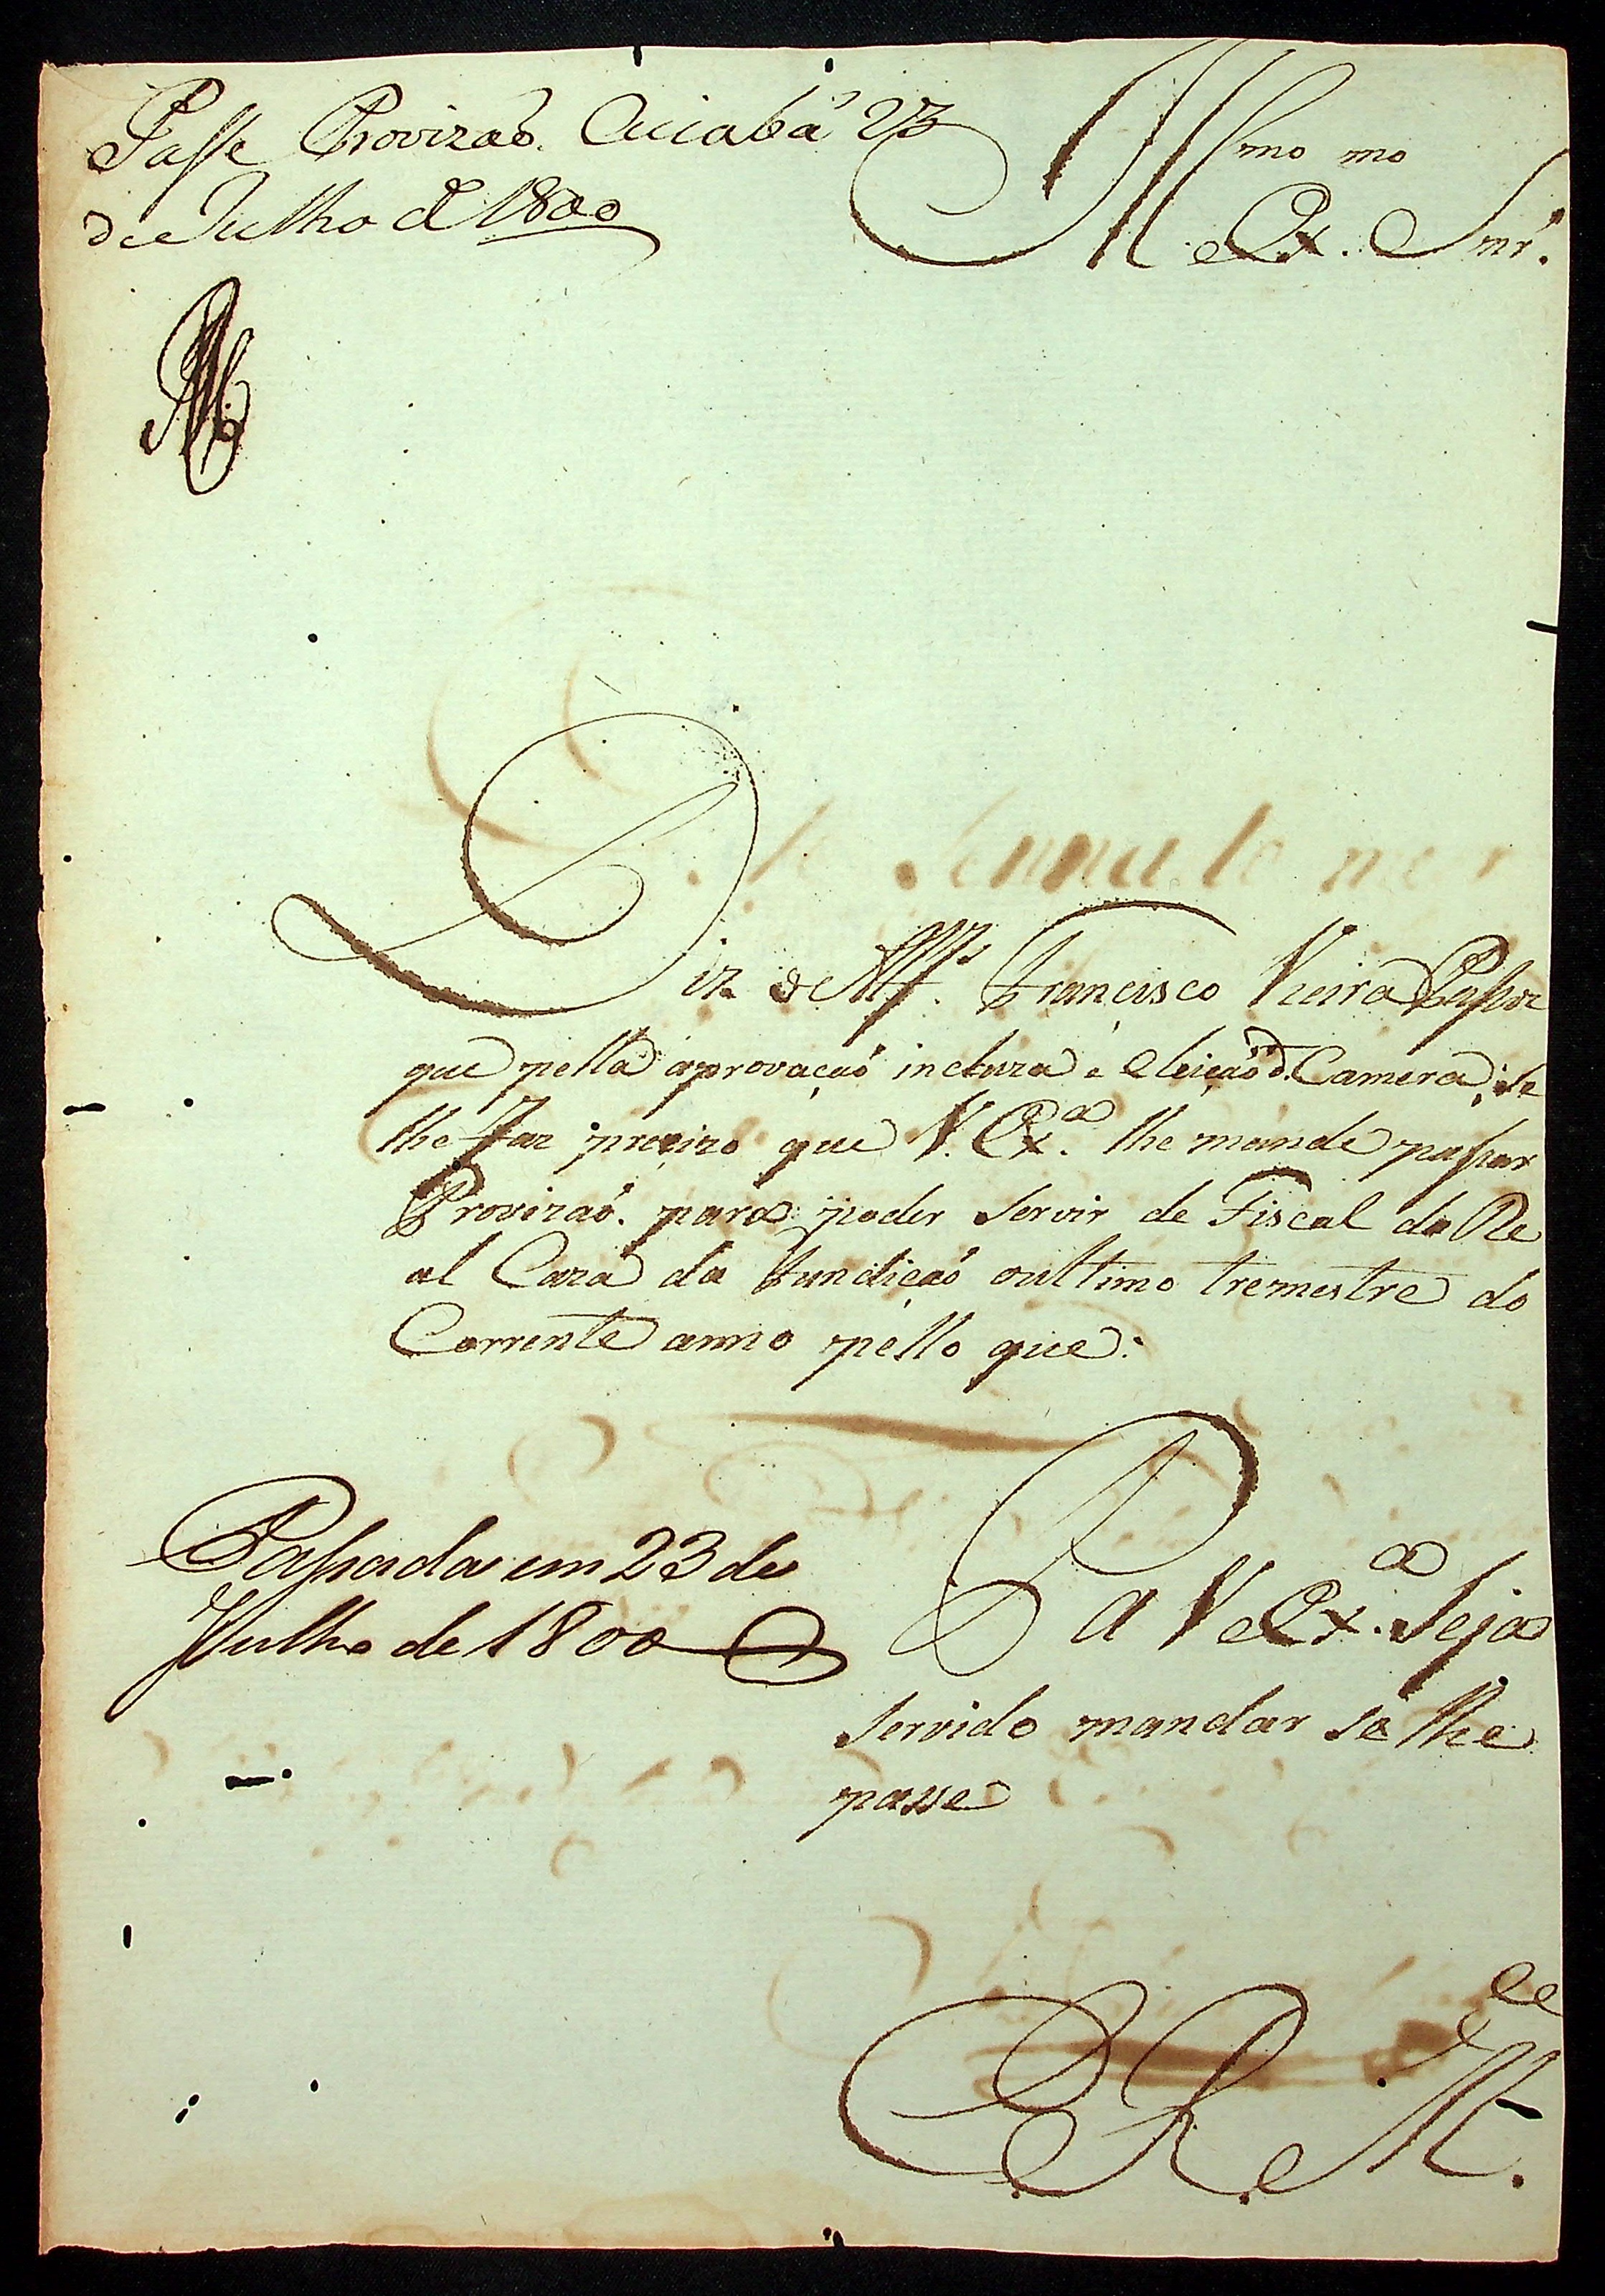 Passe Provizaõ. Cuiabá 23
de Julho de 1800
Illmo mo
Ex. Snr.
Diz o Francisco Vieira Passos
que pella aprovaçaõ incluza e Eleiçaõ d. Camera, se
lhe faz precizo que V. Exa. lhe mande passar
Provizaõ. para poder servir de Fiscal da Re
al Caza da Fundiçaõ oultimo tremestre do
Corrente anno pello que:
Passada em 23 de
Julho de 1800
P a V Exa. Seja
servido mandar se lhe
passe
E. R. Mce.